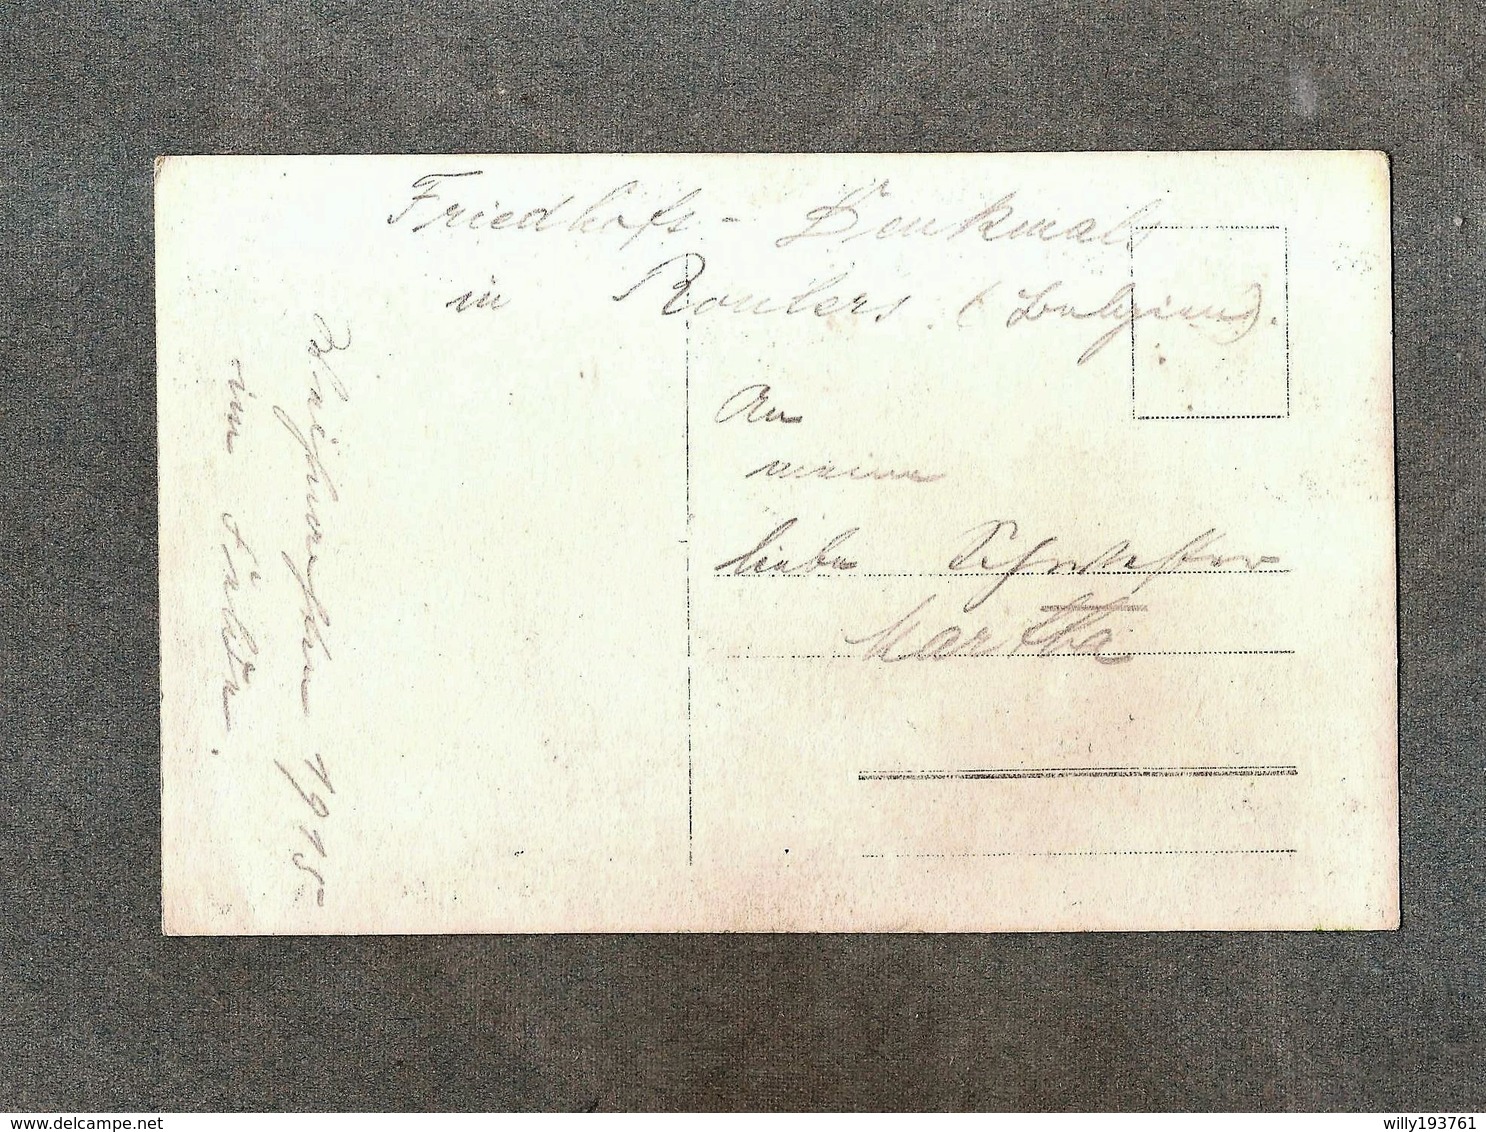 Friedhofs - Denkmals
in Roulers. (Belgien).
An
meine
liebe Schwester
Martha
Weihnachten 1915
im Felde.
© delcampe.net
willy193761